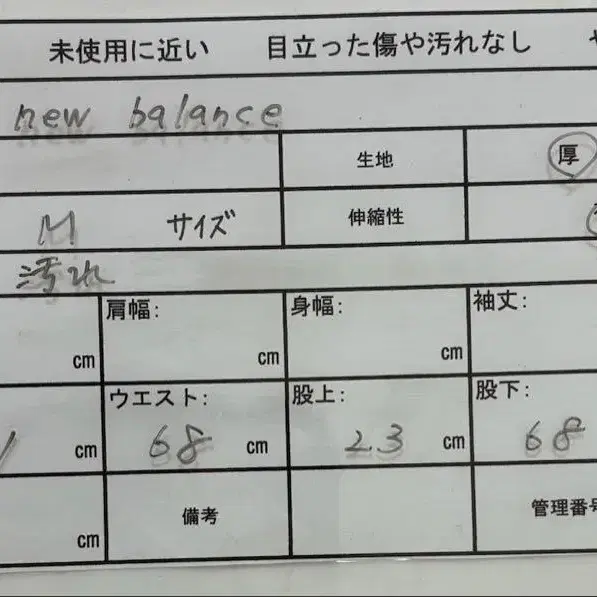 未使用に近い 目立った傷や汚れなし
new balance
生地 厚
M サイズ 伸縮性
汚れ
肩幅: 身幅: 袖丈:
cm cm cm
ウエスト: 股上: 股下:
cm 68 cm 23 cm 68
備考 管理番号
cm